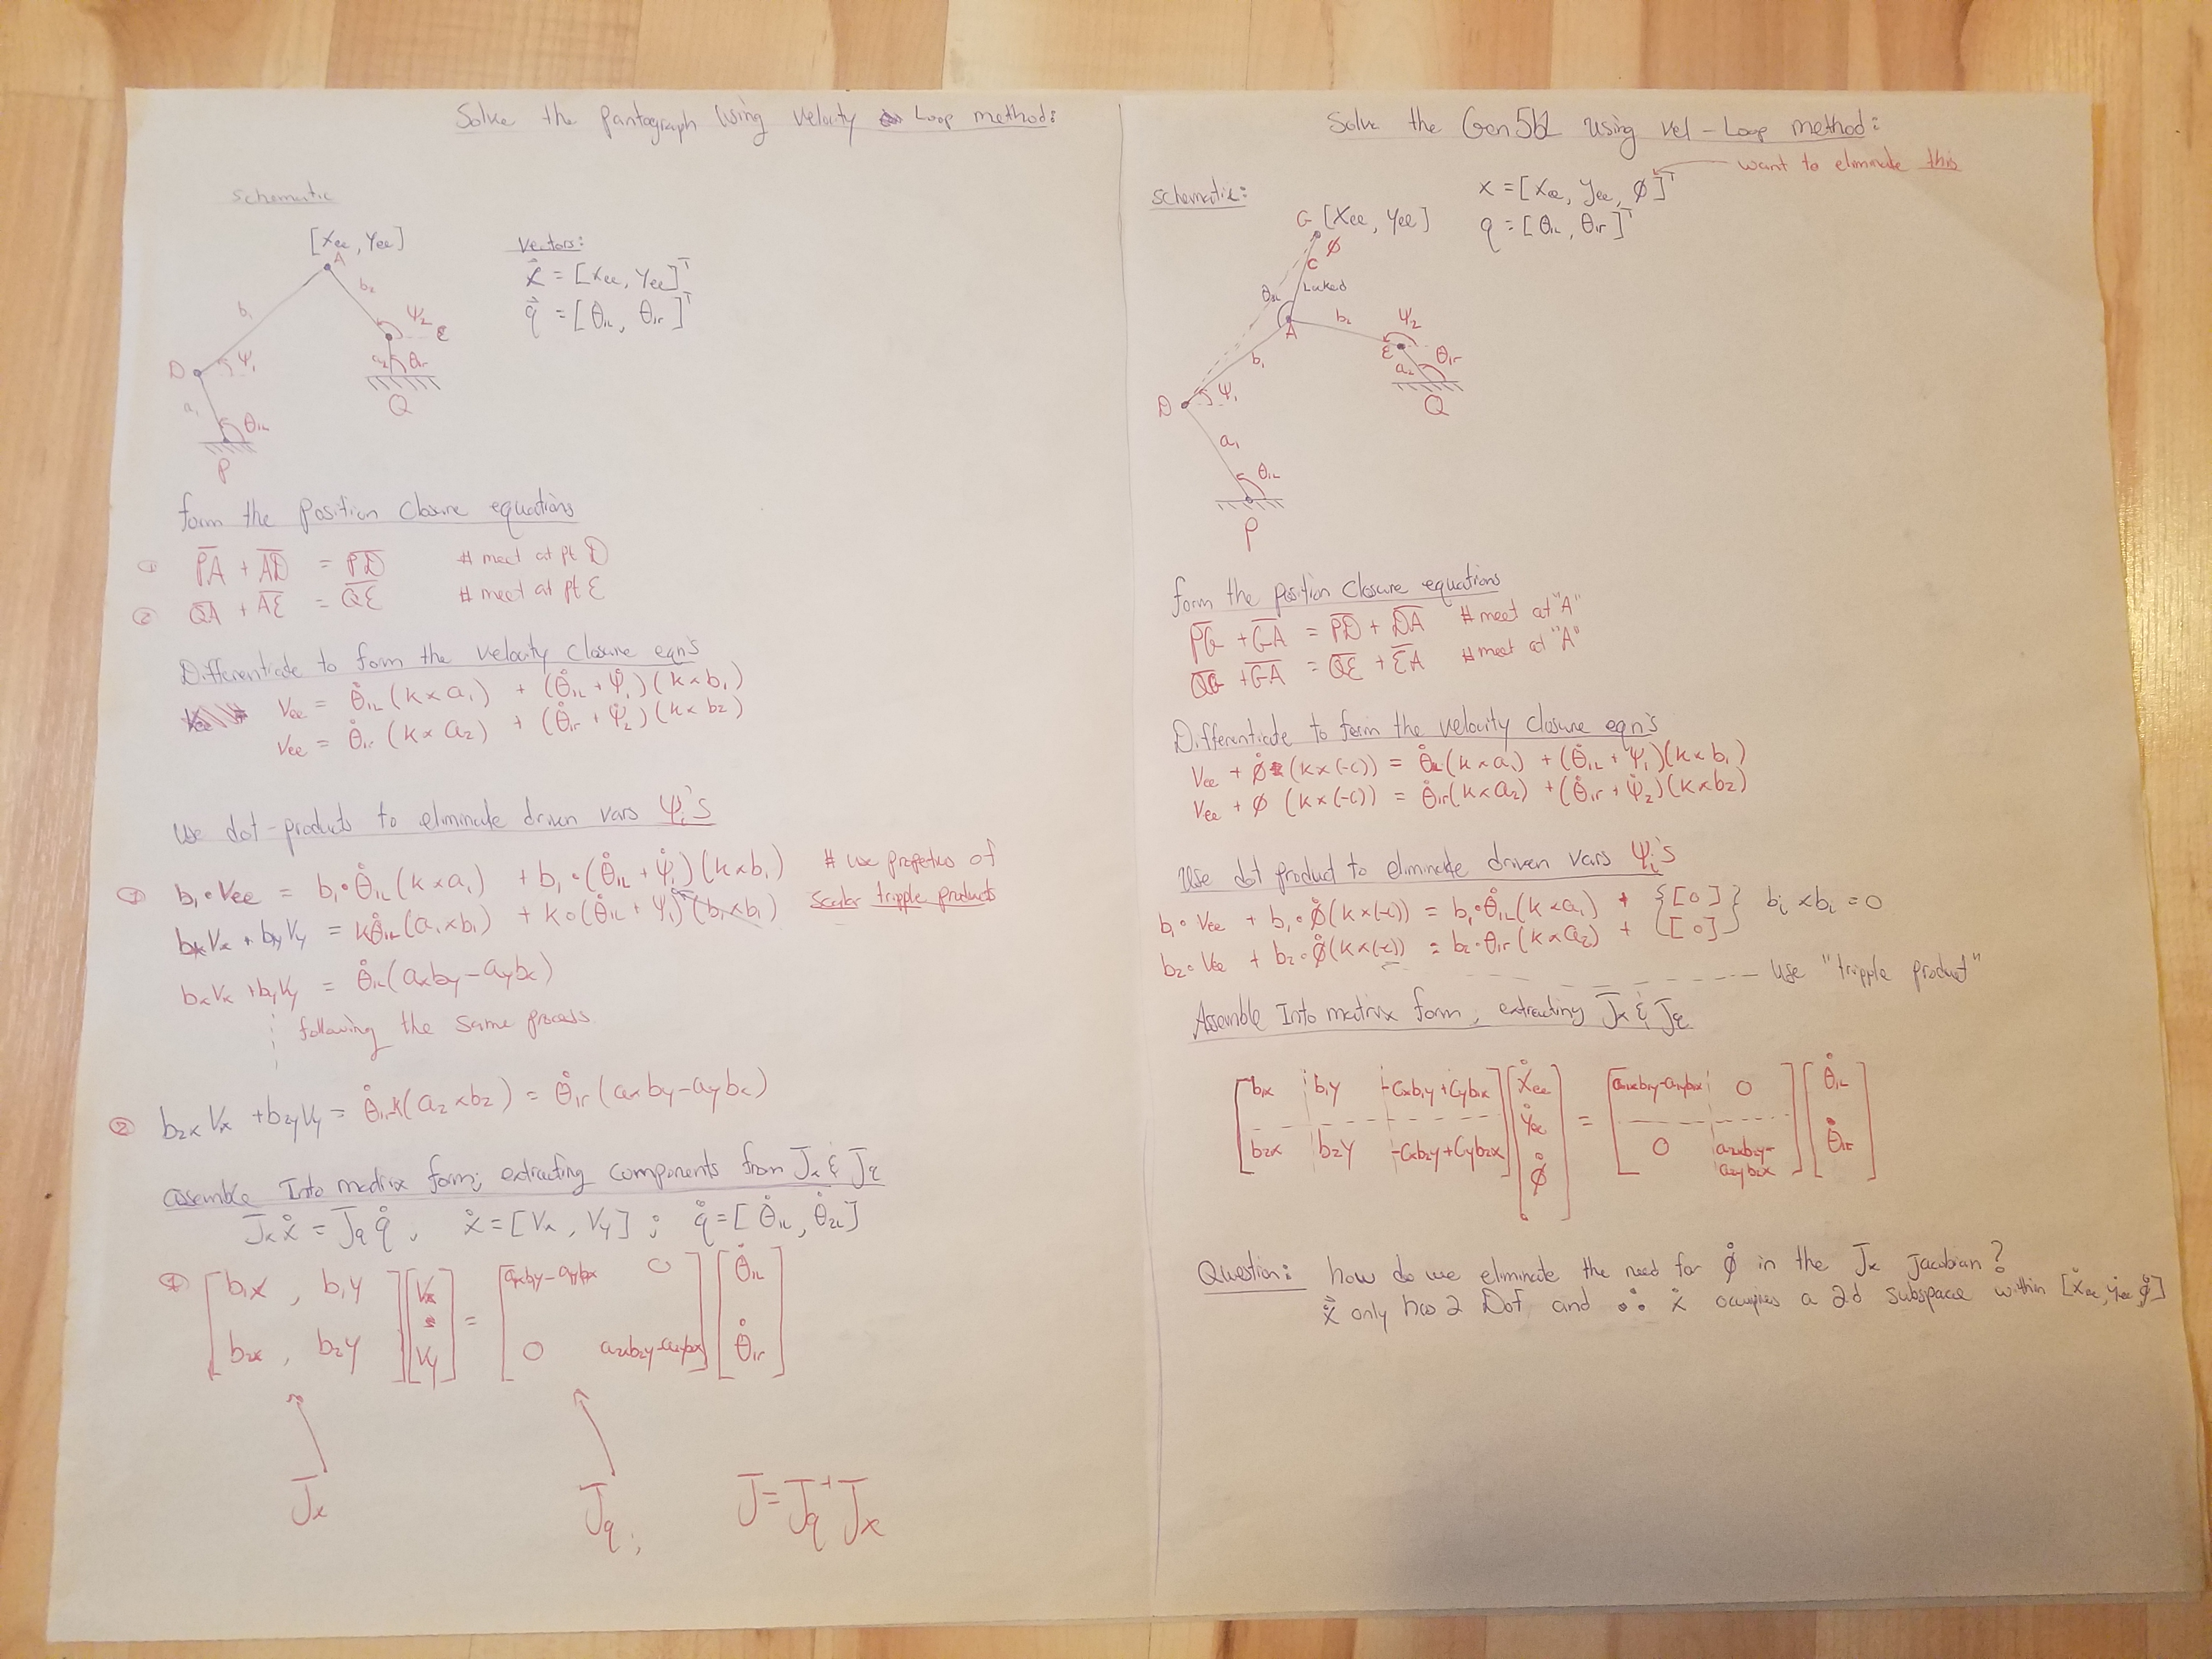 Solve the Pantograph Using Velocity Loop method:
Schematic
[Xee, Yee]
A
b₁
b₂
Ψ₂
E
D
Ψ₁
a₂
θ₁r
Q
a₁
θ₁L
P
Vectors:
x⃗ = [Xee, Yee]ᵀ
q⃗ = [θ₁L, θ₁r]ᵀ
form the Position Closure equations
① P̅A̅ + A̅D̅ = P̅D̅ # meet at pt D
② Q̅A̅ + A̅E̅ = Q̅E̅ # meet at pt E
Differentiate to form the velocity Closure eqn's
Vee = θ̇₁L (k × a₁) + (θ̇₁L + Ψ̇₁)(k × b₁)
Vee = θ̇₁r (k × a₂) + (θ̇₁r + Ψ̇₂)(k × b₂)
Use dot-products to eliminate driven vars Ψᵢ's
① b₁ • Vee = b₁•θ̇₁L (k × a₁) + b₁•(θ̇₁L + Ψ̇₁)(k × b₁) # use properties of
bxVx + byVy = kθ̇₁L(a₁×b₁) + k•(θ̇₁L + Ψ₁)(b₁×b₁) Scalar tripple products
bxVx + byVy = θ̇₁L(axby - aybx)
following the same process
② b₂xVx + b₂yVy = θ̇₁rk(a₂×b₂) = θ̇₁r (axby - aybx)
assemble Into matrix form; extracting components from J̅x & J̅q
J̅xẋ = J̅q q̇, ẋ = [Vx, Vy] ; q̇ = [θ̇₁L, θ̇₂L]
[b₁x , b₁y] [Vx] = [axby - aybx 0] [θ̇₁L]
[b₂x , b₂y] [Vy] [0 a₂xb₂y-a₂ybx] [θ̇₁r]
J̅x
J̅q ;
J̅ = J̅q⁺ J̅x
Solve the Gen5b2 using vel-Loop method:
want to eliminate this
Schematic:
x = [Xee, Yee, ϕ]ᵀ
q = [θ₁L, θ₁r]ᵀ
G [Xee, Yee]
ϕ
C
Locked
A
b₂
Ψ₂
E
θ₁r
a₂
Q
b₁
D
Ψ₁
a₁
θ₁L
P
form the position Closure equations
P̅G̅ + G̅A̅ = P̅D̅ + D̅A̅ # meet at "A"
Q̅G̅ + G̅A̅ = Q̅E̅ + E̅A̅ # meet at "A"
Differentiate to form the velocity closure eqn's
Vee + ϕ̇ (k×(-c)) = θ̇₁L(k×a₁) + (θ̇₁L + Ψ̇₁)(k×b₁)
Vee + ϕ (k×(-c)) = θ̇₁r(k×a₂) + (θ̇₁r + Ψ̇₂)(k×b₂)
Use dot product to eliminate driven vars Ψᵢ's
b₁• Vee + b₁•ϕ̇(k×(-c)) = b₁•θ̇₁L(k×a₁) + {[0]} bᵢ×bᵢ = 0
b₂• Vee + b₂•ϕ̇(k×(-c)) = b₂•θ₁r(k×a₂) + {[0]}
use "tripple product"
Assemble Into matrix form; extracting J̅x & J̅q
[b₁x b₁y -Cxb₁y+Cyb₁x] [Ẋee] = [a₁xb₁y-a₁yb₁x 0] [θ̇₁L]
[b₂x b₂y -Cxb₂y+Cyb₂x] [Ẏee] [0 a₂xb₂y-a₂yb₂x] [θ̇₁r]
[ϕ̇]
Question: how do we eliminate the need for ϕ̇ in the J̅x Jacobian?
ẋ only has 2 Dof, and ∴ ẋ occupies a 2d subspace within [Ẋee, Ẏee, ϕ̇]